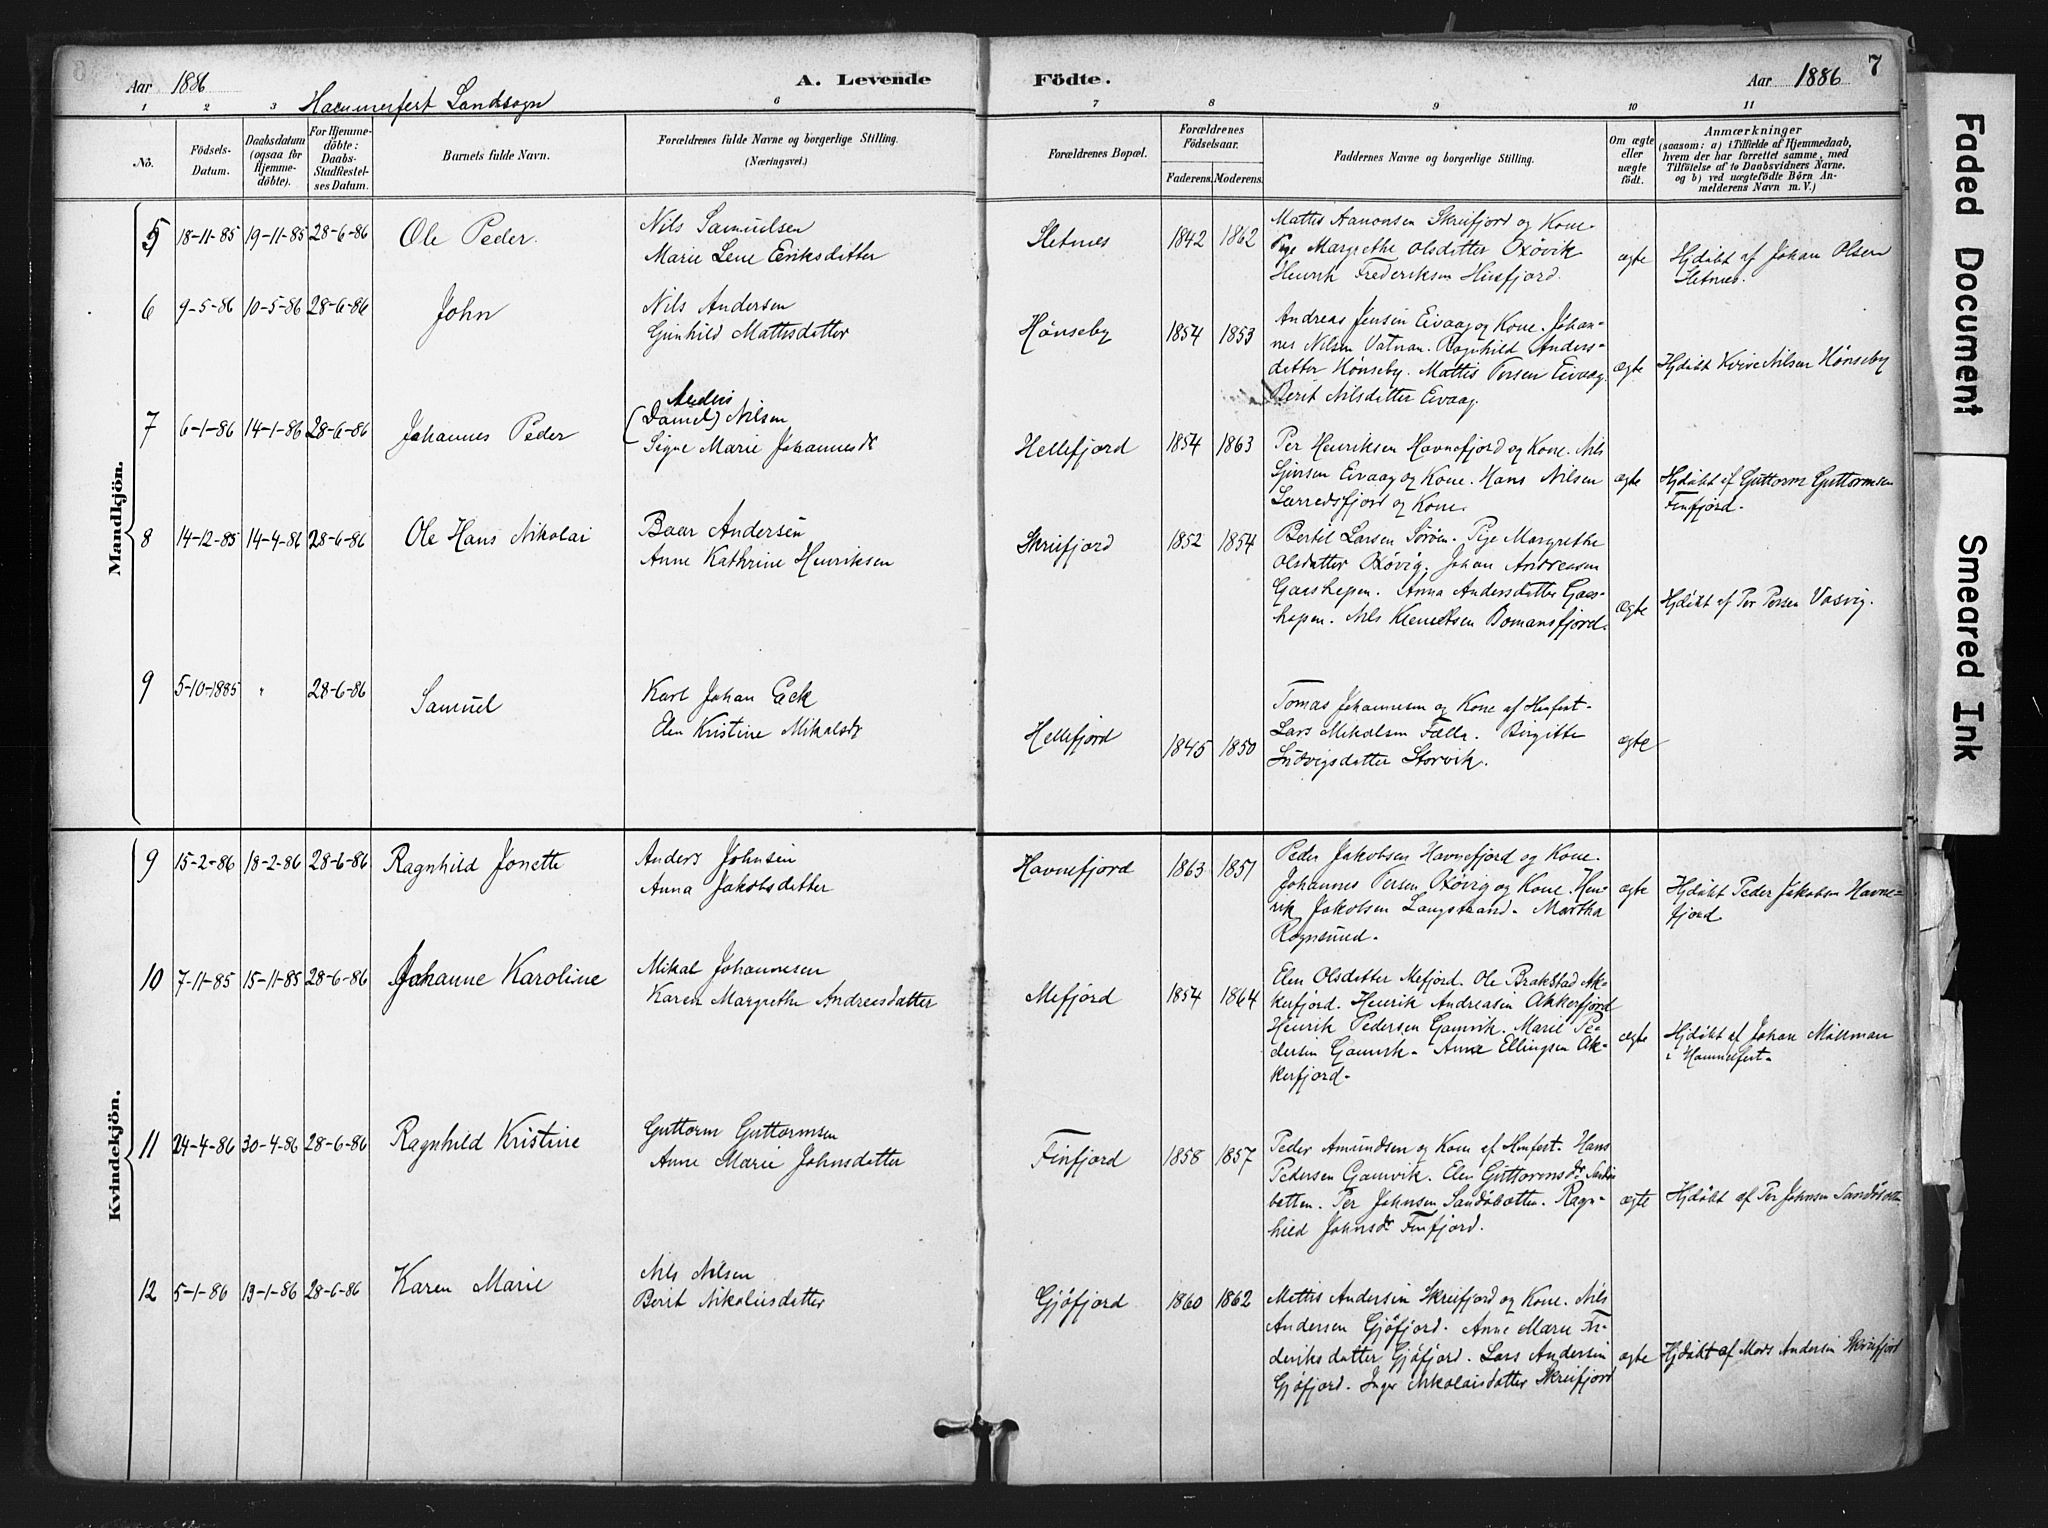 Aar 1886 A. Levende Födte. Aar 1886 7
Hammerfest Landsogn
1 2 3 6 7 8 9 10 11
No.
Födsels-Datum.
Daabsdatum (ogsaa för Hjemme-döbte).
For Hjemme-döbte: Daabs-Stadfestel-ses Datum.
Barnets fulde Navn.
Forældrenes fulde Navne og borgerlige Stilling. (Næringsvei.)
Forældrenes Bopæl.
Forældrenes Födselsaar.
Faderens. Moderens.
Faddernes Navne og borgerlige Stilling.
Om ægte eller uægte födt.
Anmærkninger
(saasom: a) i Tilfælde af Hjemmedaab, hvem der har forrettet samme, med Tilföielse af to Daabsvidners Navne. og b) ved uægtefödte Börn An-melderens Navn m. V.)
Mandkjön.
5 18-11-85 19-11-85 28-6-86 Ole Peder.
Nils Samuelsen
Marie Lene Eriksdatter
Sletnes 1842 1862
Mattis Aanonsen Skreifjord og Kone.
Pige Margrethe Olsdatter Oxøvik
Henrik Frederiksen Husfjord.
ægte
Hjdøbt af Johan Olsen
Sletnes.
6 9-5-86 10-5-86 28-6-86 John
Nils Andersen
Gunhild Mattisdatter
Hønseby 1854 1853
Andreas Jensen Eivaag og Kone. Johan-
nes Nilsen Vatnan. Ragnhild Anders-
datter Hønseby. Mattis Persen Eivaag.
Berit Nilsdatter Eivaag.
ægte
Hjdøbt Nilsen Hønseby
7 6-1-86 14-1-86 28-6-86 Johannes Peder
Anders
(Daniel) Nilsen
Signe Marie Johannesdr
Hellefjord 1854 1863
Per Henriksen Havnefjord og Kone. Nils
Eivaag og Kone. Hans Nilsen
og Kone.
ægte
Hjdøbt af Guttorm Guttormsen
Finfjord.
8 14-12-85 14-4-86 28-6-86 Ole Hans Nikolai
Baar Andersen
Anne Kathrine Henriksen
Skreifjord 1852 1854
Bertil Larsen Sørøen. Pige Margrethe
Olsdatter Oxøvig. Johan Andreasen
Gaashopen. Anna Andersdatter Gaas-
hopen. Nils Klemetsen Bomansfjord.
ægte
Hjdøbt af Per Persen Vasvig.
9 5-10-1885 " 28-6-86 Samuel
Karl Johan Eck
Elen Kristine Mikalsdr
Hellefjord 1845 1850
Tomas Johannesen og Kone af Hmfest-
Lars Mikalsen Birgitte
Ludvigsdatter Storvik.
ægte
Kvindekjön.
9 15-2-86 18-2-86 28-6-86 Ragnhild Jonette
Anders Johnsen
Anna Jakobsdatter
Havnefjord 1863 1851
Peder Jakobsen Havnefjord og Kone.
Johannes Persen Oxøvig og Kone. Hen-
rik Jakobsen Langstrand. Martha
Rognsund.
ægte
Hjdøbt Peder Jakobsen Havne-
fjord
10 7-11-85 15-11-85 28-6-86 Johanne Karoline
Mikal Johannesen
Karen Margrethe Andreasdatter
Mefjord 1854 1864
Elen Olsdatter Mefjord. Ole Brakstad Ak-
kerfjord. Henrik Andreasen Akkerfjord
Henrik Pedersen Gamvik. Marie Pe-
dersen Gamvik. Anne Ellingsen Ak-
kerfjord.
ægte
Hjdøbt af Johan Mollman
i Hammerfest.
11 24-4-86 30-4-86 28-6-86 Ragnhild Kristine
Guttorm Guttormsen
Anne Marie Johnsdatter
Finfjord 1858 1857
Peder Amundsen og Kone af Hmfest. Hans
Pedersen Gamvik. Elen Guttormsdr Sandø
botten. Per Johnsen Sandøbotten. Ragn-
hild Johnsdr Finfjord.
ægte
Hjdøbt af Per Johnsen Sandøbotten
12 5-1-86 13-1-86 28-6-86 Karen Marie
Nils Nilsen
Berit Nikolaisdatter
Gjøfjord 1860 1862
Mattis Andersen Skreifjord og Kone. Nils
Andersen Gjøfjord. Anne Marie Fre-
deriksdatter Gjøfjord. Lars Andersen
Gjøfjord. Inger Nikolaisdatter Skreifjord
ægte
Hjdøbt af Mads Andersen Skreifjord
Faded Document
Smeared Ink